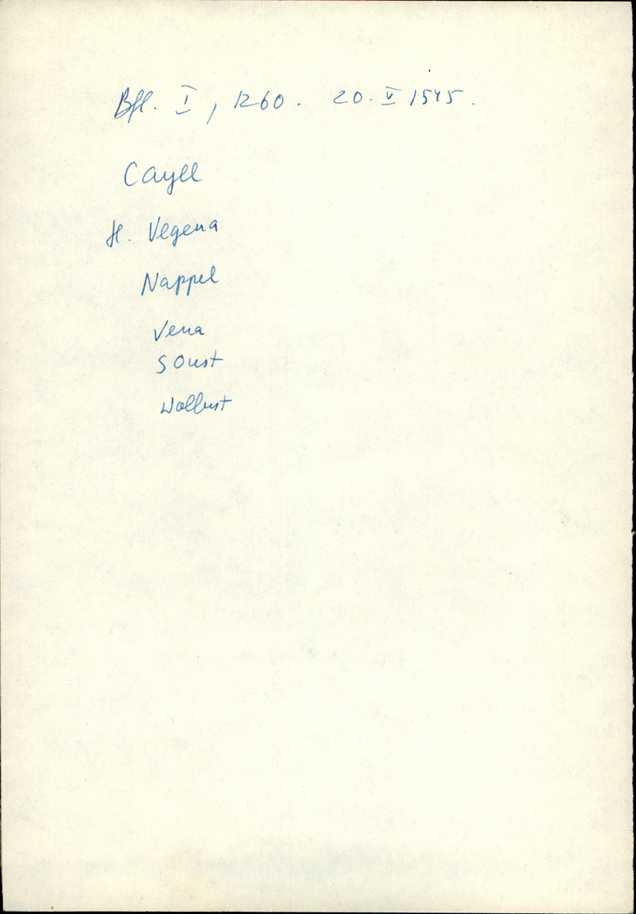 Bfl. I, 1260. 20. V 1545.
Cayll
H. Vegena
Nappel
Vena
SOust
Wollust